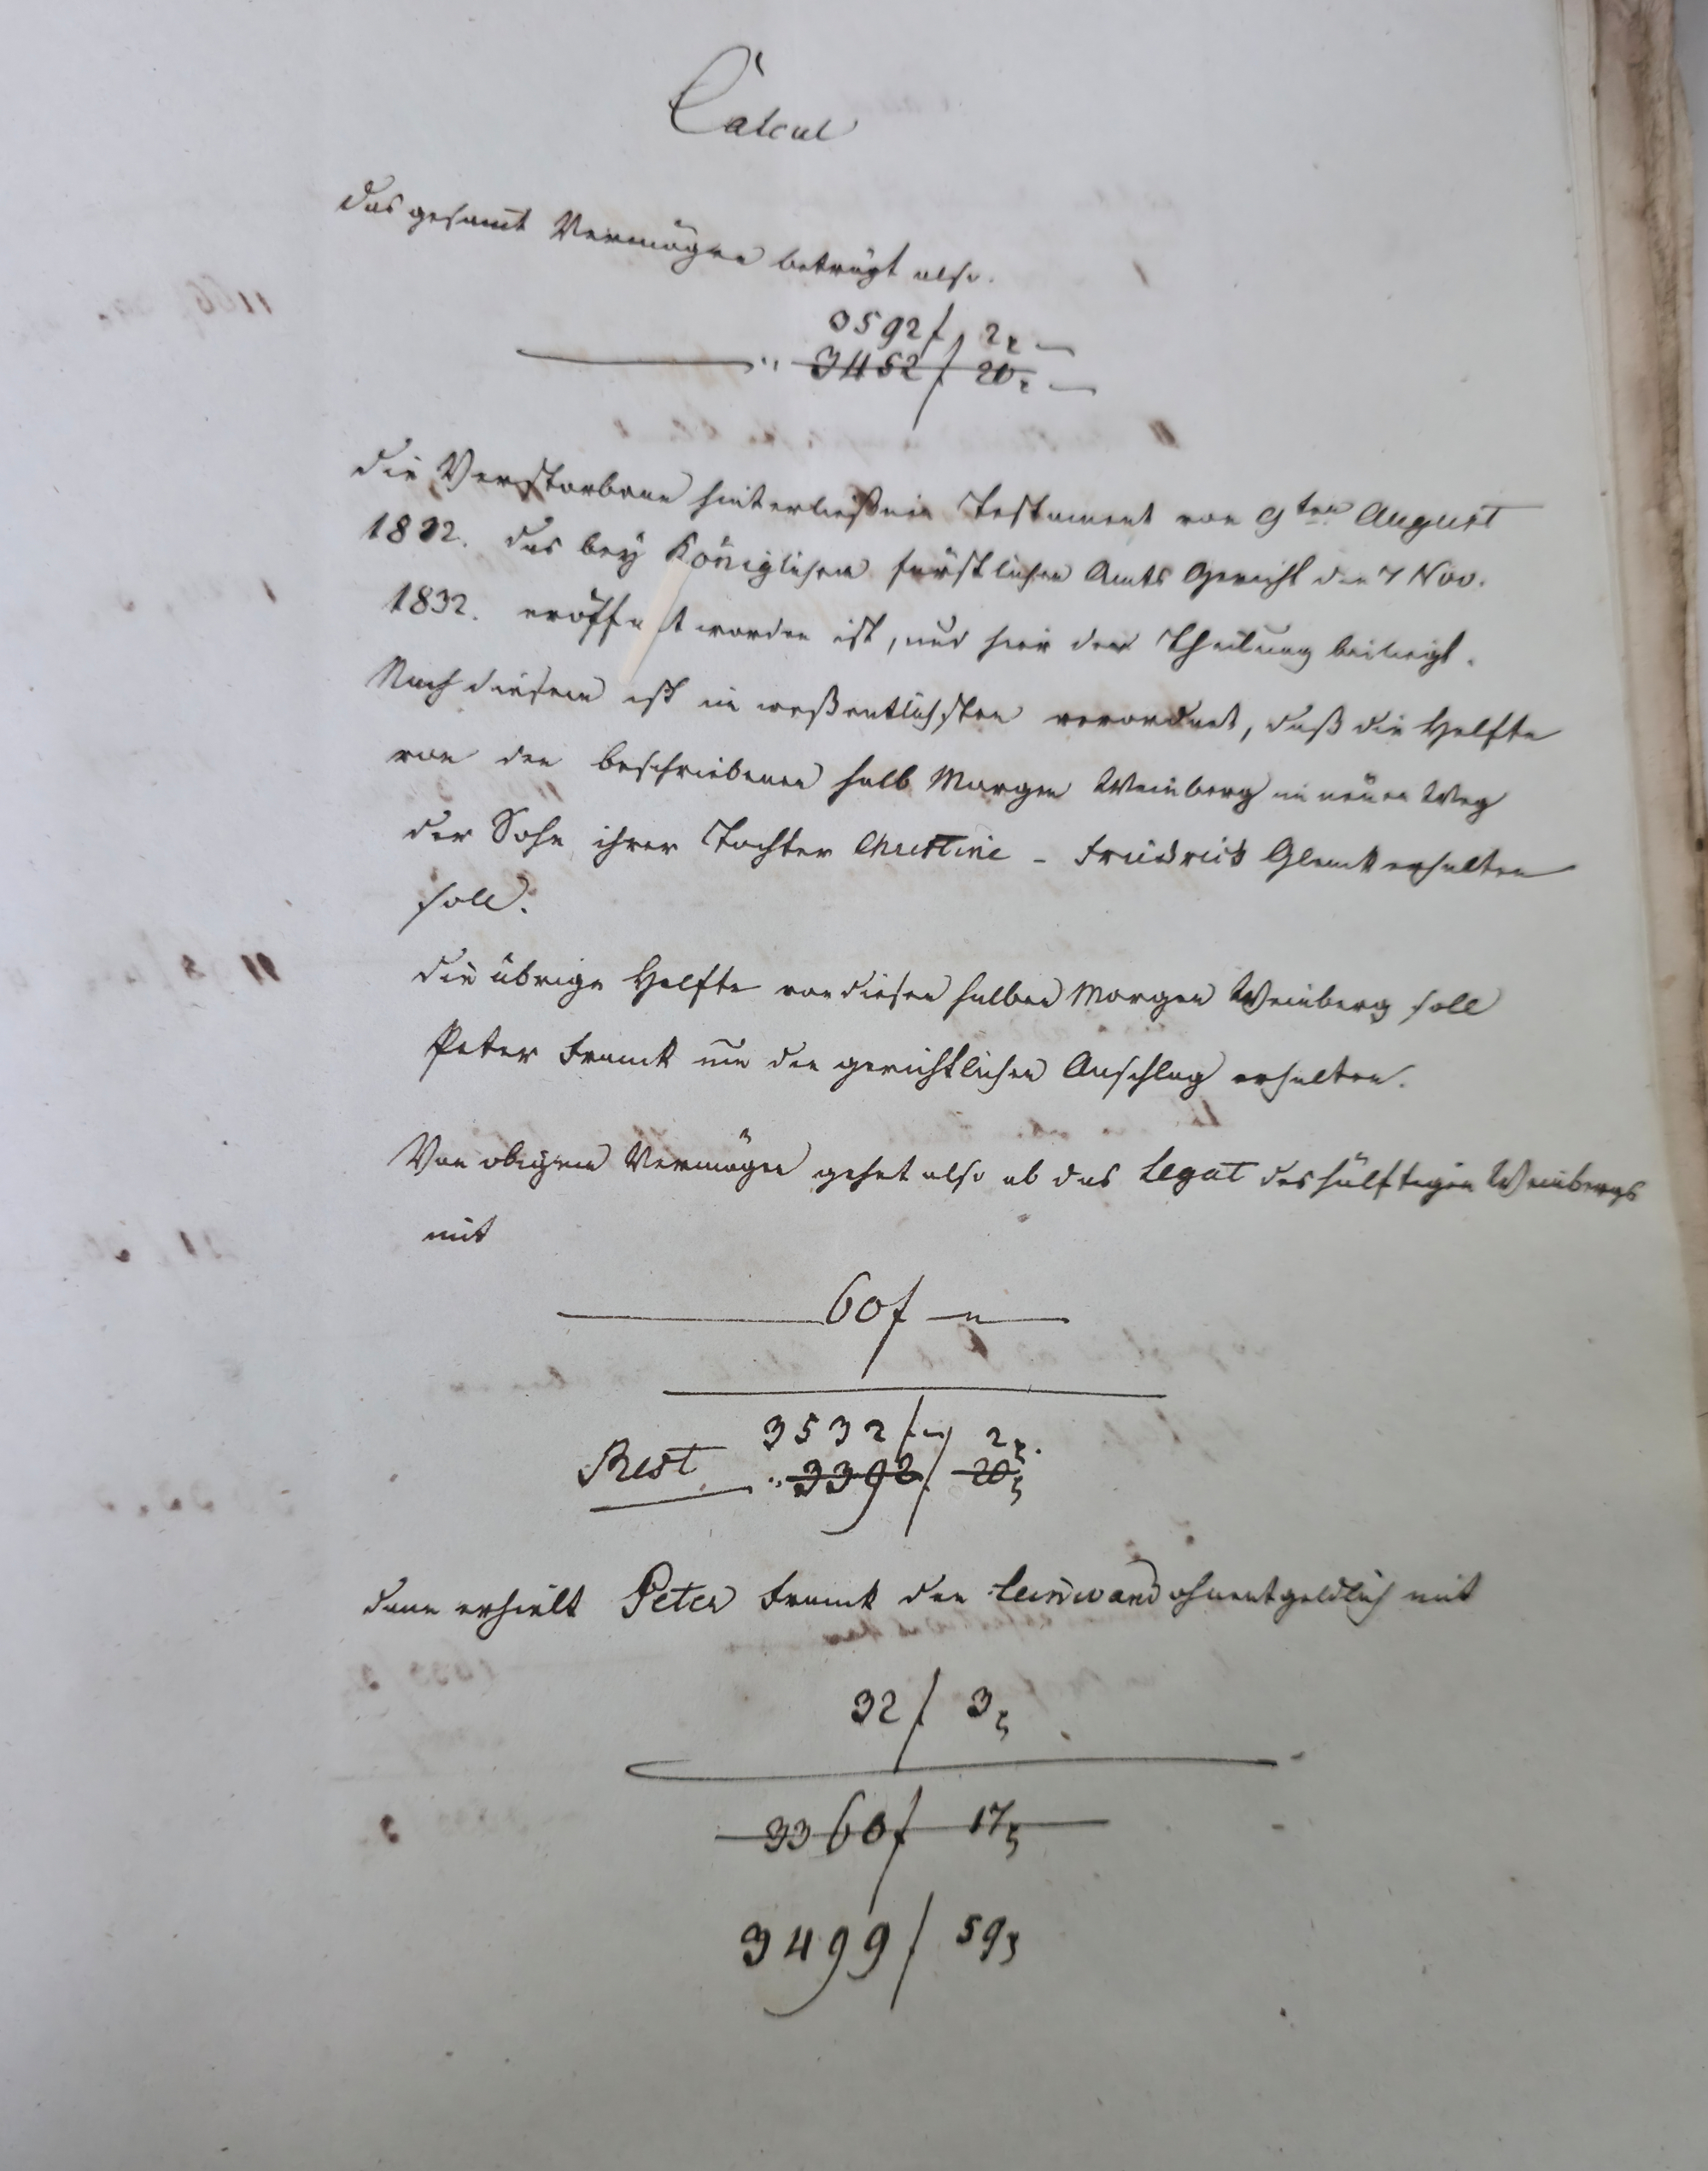 Calcul
Das gesamt Vermögen beträgt also.
3592 f 2 x
3452 f 20 x
Die Verstorbene hinterließ ein Testament von 9ten August
1832. das bey Königlichen fürstlichen Amts Gericht den 7 Nov.
1832. eröffnet worden ist, und hier der Theilung beiliegt.
Nach diesem ist im weßentlichsten verordnet, daß die Helfte
von den beschriebenen halb Morgen Weinberg im neuen Weg
der Sohn ihrer Tochter Christine - Friedrich Glenck erhalten
soll.
Die übrige Helfte von diesen halben Morgen Weinberg soll
Peter Franck um den gerichtlichen Anschlag erhalten.
Von obigem Vermögen gehet also ab das Legat des hälftigen Weinbergs
mit
60 f — "
3532 f 2 x.
Rest 3392 f 20 x
Dann erhielt Peter Franck den Leinwand ohnentgeldlich mit
32 f 3 x
3360 f 17 x
3499 f 59 x